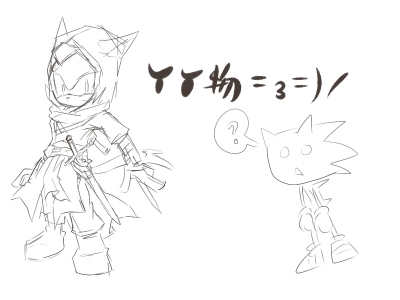 丫丫物 = 3 =)ノ
?